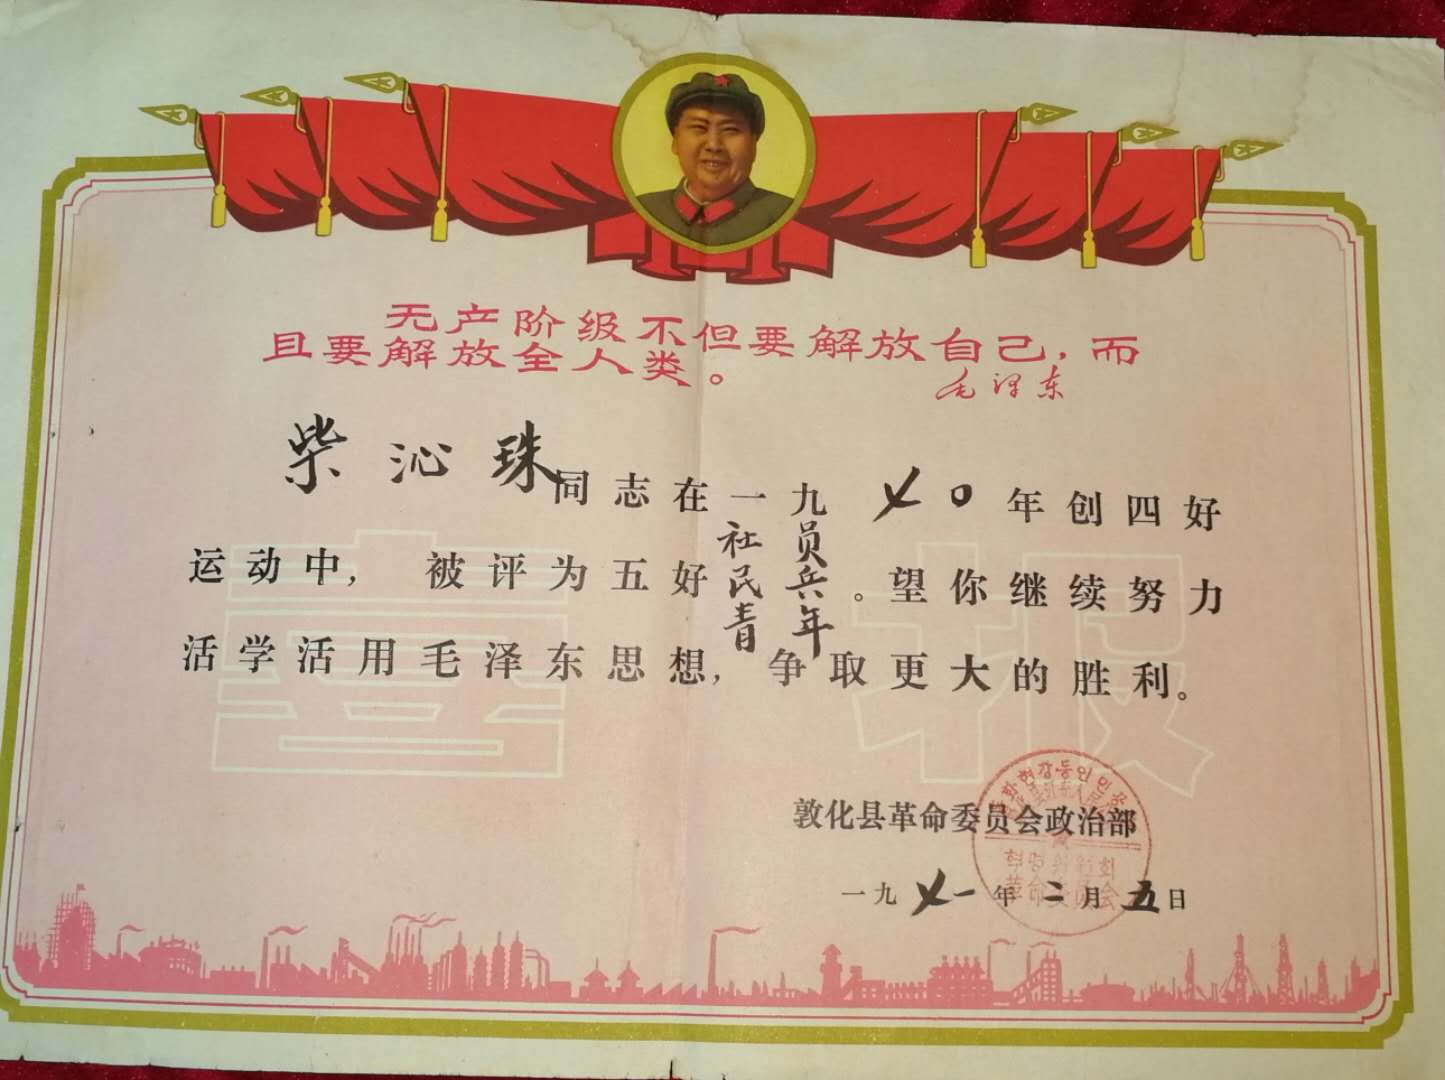 无产阶级不但要解放自己，而
且要解放全人类。
毛泽东
柴沁珠同志在一九七〇年创四好
运动中，被评为五好社员民兵青年。望你继续努力
活学活用毛泽东思想，争取更大的胜利。
喜报
敦化县革命委员会政治部
一九七一年二月五日
革命委员会